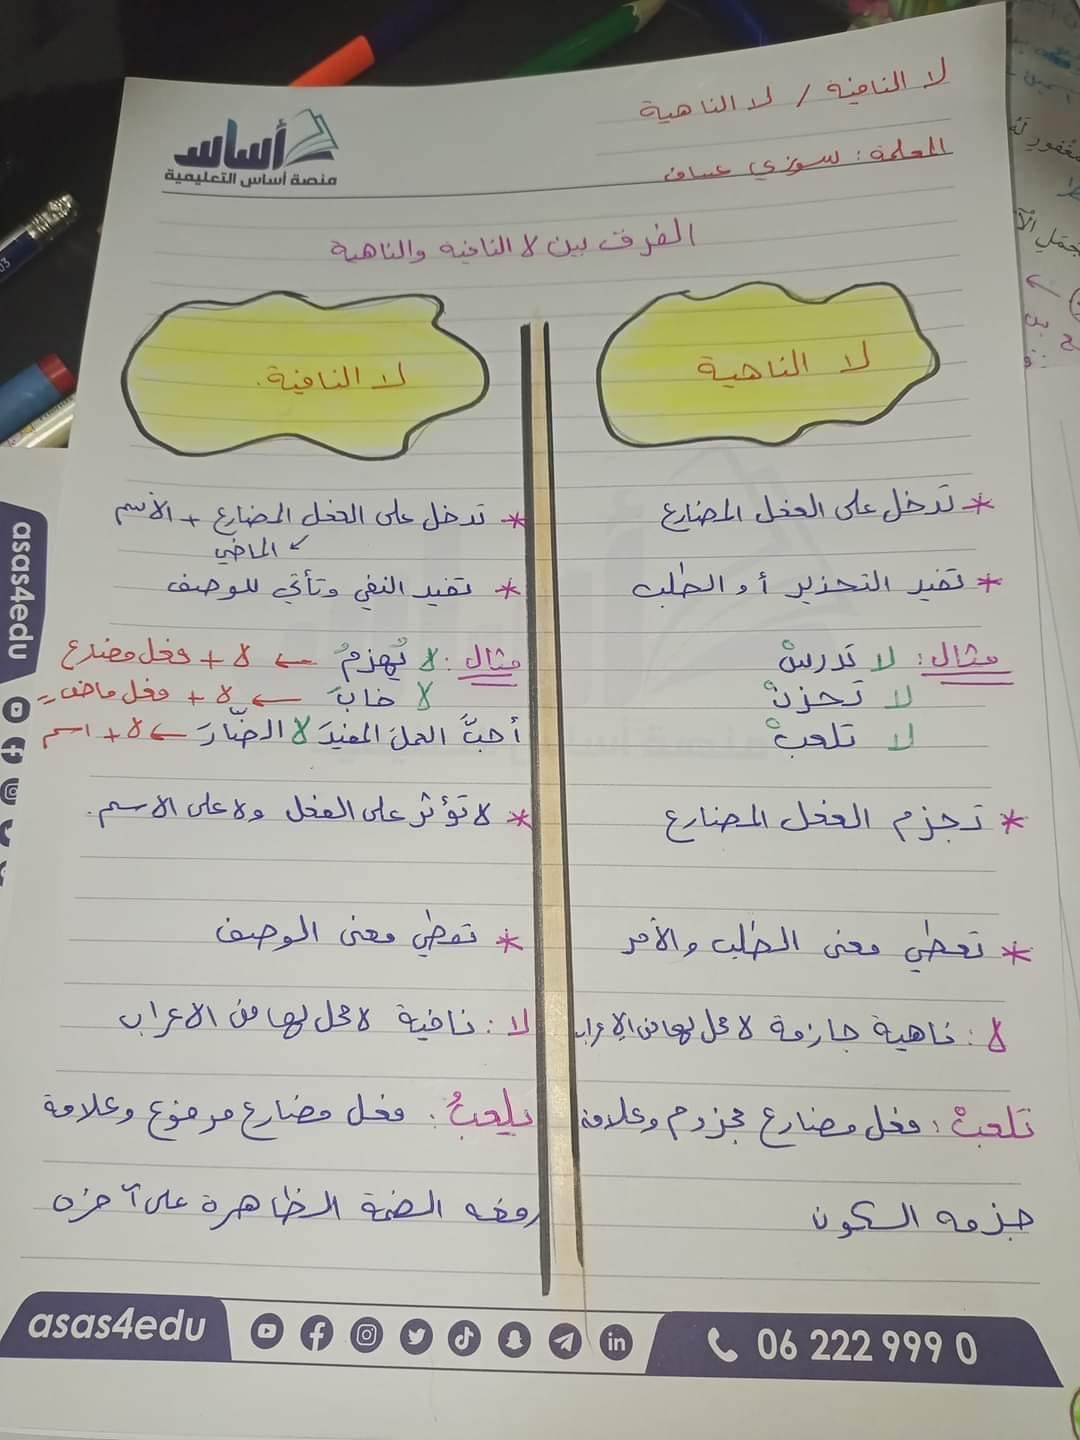 لا النافية / لا الناهية
المعلمة: سوزي عساف
أساس
منصة أساس التعليمية
الفرق بين لا النافية والناهية
لا الناهية
* تدخل على الفعل المضارع
* تفيد التحذير أو الطلب
مثال: لا تدرسْ
لا تحزنْ
لا تلعبْ
* تجزم الفعل المضارع
* تعطي معنى الطلب والأمر
لا: ناهية جازمة لا محل لها من الإعراب
تلعبْ: فعل مضارع مجزوم وعلامة
جزمه السكون
لا النافية.
* تدخل على الفعل المضارع + الأسم
الماضي
* تفيد النفي وتأتي للوصف
مثال: لا يُهزمُ ← لا + فعل مضارع
لا خابَ ← لا + فعل ماضٍ
أحبَّ العملَ المفيدَ لا الضّارَ ← لا + اسم
* لا تؤثر على الفعل ولا على الاسم.
* تعطي معنى الوصف
لا: نافية لا محل لها من الاعراب
يلعبُ: فعل مضارع مرفوع وعلامة
رفعه الضمة الظاهرة على آخره
asas4edu
06 222 999 0
asas4edu